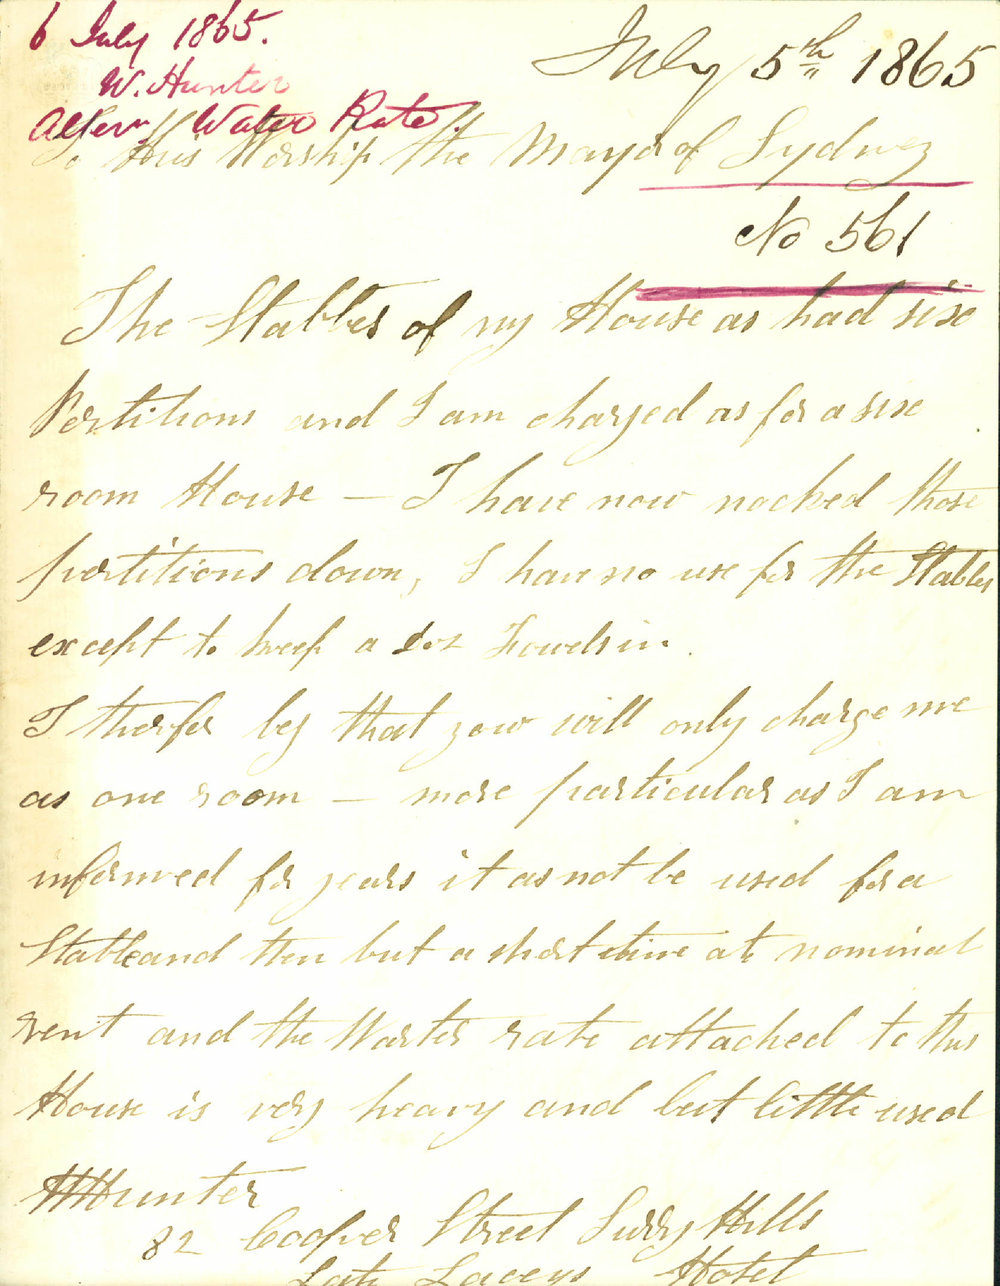 6 July 1865.
W. Hunter
Water Rate.
July 5th 1865
To His Worship the Mayor of Sydney
No 561
The Stables of my House as had six
Pertitions and I am charged as for a six
room House — I have now nocked those
pertitions down, I have no use for the Stables
except to keep a doz Fowels in.
I therfor beg that yow will only charge me
as one room — more particular as I am
informed for years it as not be used for a
Stable and then but a short time at nominal
rent and the Warter rate attached to this
House is very heavy and but little used
W Hunter
82 Cooper Street Surry Hills
Late Laceys Hotel